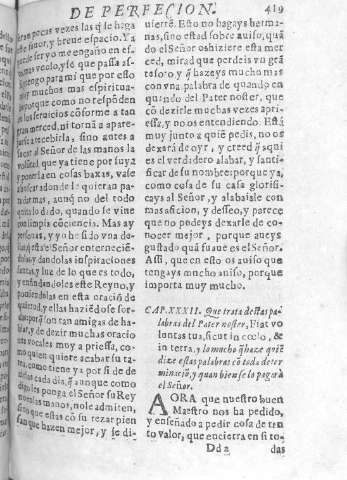 DE PERFECION.
419
eran pocas vezes las q̃ le haga
este señor, y breue espacio. Ya
puede ser yo me engaño en es-
to
tengo para mi que por esso
ay muchos mas espiritua-
porque como no respõden
en los seruicios cõforme a tan
gran merced, ni tornã a apare-
jarse a recebirla, sino antes a
sacar al Señor de las manos la
volũtad que ya tiene por suya
y ponerla en cosas baxas, vase
a buscar adonde le quieran pa-
ra dar mas, aunq̃ no del todo
quita lo dado, quando se viue
con limpia cõciencia. Mas ay
personas, y yo he sido vna de-
llas, q̃ està el Señor enternecié-
dolas, y dandolas inspiraciones
santas, y luz de lo que es todo,
y en fin dandoles este Reyno, y
poniendolas en esta oraciõ de
quietud, y ellas haziẽdose sor-
das, porq̃ son tan amigas de ha-
blar, y de dezir muchas oracio
nes vocales muy a priessa, co-
mo quien quiere acabar su ta-
rea, como tiene ya por si de de
zirlas cada dia, q̃ aunque como
digo les ponga el Señor su Rey
no en las manos, no le admiten,
sino que estas cõ su rezar pien
san que hazen mejor, y se di-
uierẽ. Esto no hagays herma-
nas, sino estad sobre auiso, quã
do el Señor os hiziere esta mer
ced, mirad que perdeis vn grã
tesoro, y q̃ hazeys mucho mas
con vna palabra de quando en
quando del Pater noster, que
cõ dezirle muchas vezes apri-
essa, y no os entendiendo. Està
muy junto a quiẽ pedis, no os
dexarà de oyr, y creed q̃ aqui
es el verdadero alabar, y santi-
ficar de su nombre: porque ya,
como cosa de su casa glorifi-
cays al Señor, y alabaisle con
mas aficion, y desseo, y parece
que no podeys dexarle de co-
nocer mejor, porque aueys
gustado quã suaue es el Señor.
Assi, que en esto os auiso que
tengays mucho auiso, porque
importa muy mucho.
CAP. XXXII. Que trata destas pa-
labras del Pater noster, Fiat vo
luntas tua, sicut in cœlo, &
in terra, y lo mucho q̃ haze quiẽ
dize estas palabras cõ toda deter
minaciõ, y quan bien se lo pagarà
el Señor.
AORA que nuestro buen
Maestro nos ha pedido,
y enseñado a pedir cosa de tan
to valor, que encierra en si to-
Dd 2
das